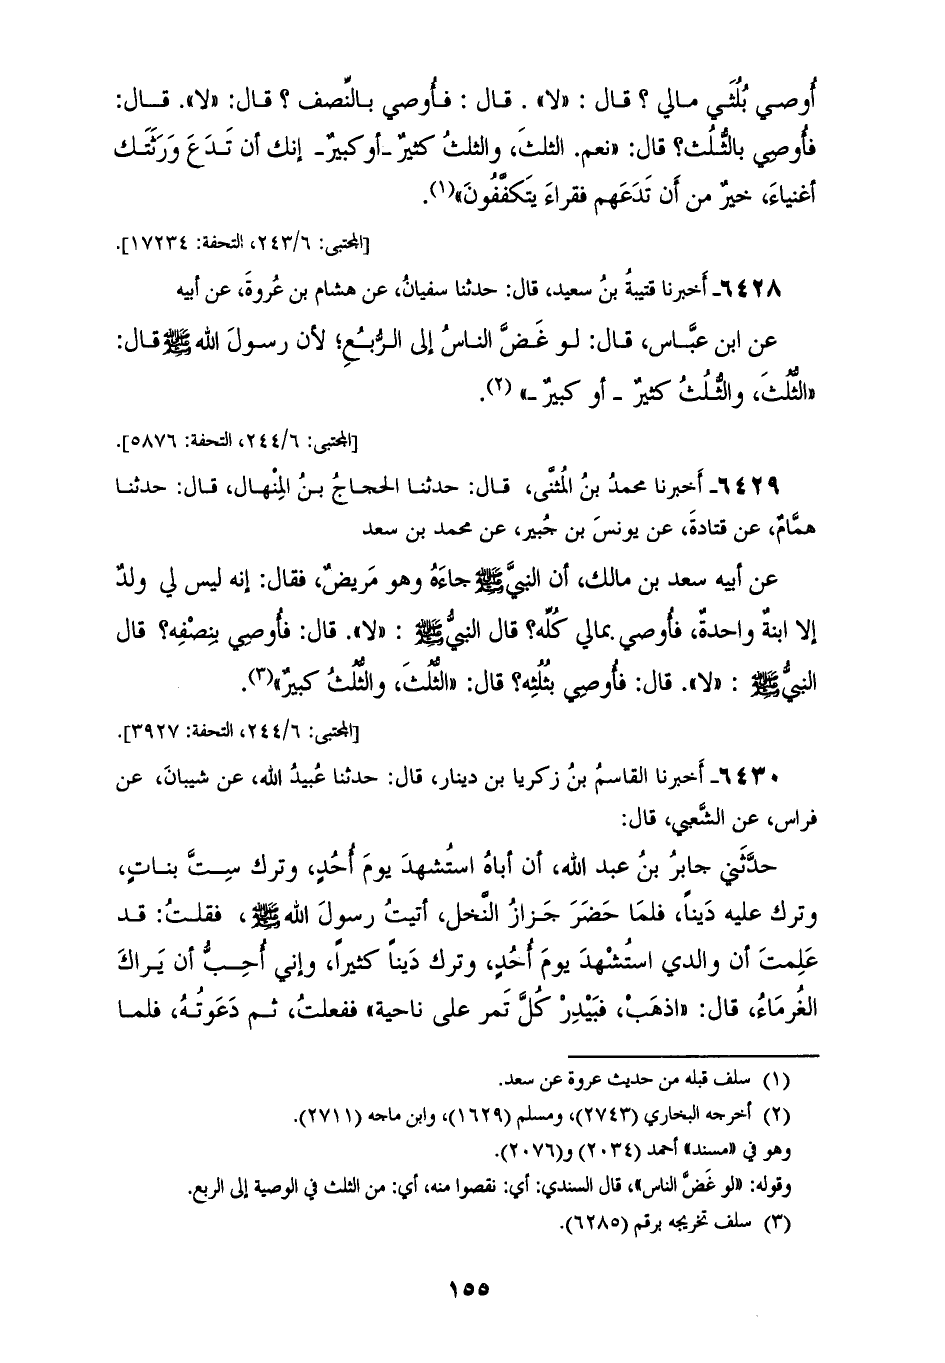 أُوصي بُلُثَي مالي ؟ قال : «لا» . قال : فأُوصي بالنِّصف ؟ قال: «لا». قال:
فأُوصِي بالثُّلُث؟ قال: «نعم. الثلثَ، والثلثُ كثيرٌ -أو كبيرٌ- إنك أن تَدَعَ وَرَثَتَك
أغنياءَ، خيرٌ من أن تَدَعَهم فقراءَ يَتكفَّفُونَ»(١).
[المجتبى: ٢٤٣/٦، التحفة: ١٧٢٣٤].
٦٤٢٨ـ أَخبرنا قتيبةُ بنُ سعيد، قال: حدثنا سفيانُ، عن هشام بن عُروةَ، عن أبيه
عن ابن عبَّاس، قال: لو غَضَّ الناسُ إلى الرُّبُعِ؛ لأن رسولَ الله ﷺ قال:
«الثُّلُثَ، والثُّلُثُ كثيرٌ ـ أو كبيرٌ ـ» (٢).
[المجتبى: ٢٤٤/٦، التحفة: ٥٨٧٦].
٦٤٢٩ـ أَخبرنا محمدُ بنُ المُثنَّى، قال: حدثنا الحجاجُ بنُ المِنْهال، قال: حدثنا
همَّامٌ، عن قتادةَ، عن يونسَ بن جُبير، عن محمد بن سعد
عن أبيه سعد بن مالك، أن النبيَّ ﷺ جاءَهُ وهو مَريضٌ، فقال: إنه ليس لي ولدٌ
إلا ابنةٌ واحدةٌ، فأُوصي بمالي كُلِّه؟ قال النبيُّ ﷺ : «لا». قال: فأُوصِي بنِصْفِه؟ قال
النبيُّ ﷺ : «لا». قال: فأُوصِي بثُلُثِه؟ قال: «الثُّلُثَ، والثُّلُثُ كبيرٌ»(٣).
[المجتبى: ٢٤٤/٦، التحفة: ٣٩٢٧].
٦٤٣٠ـ أَخبرنا القاسمُ بنُ زكريا بن دينار، قال: حدثنا عُبيدُ الله، عن شيبانَ، عن
فراس، عن الشَّعبي، قال:
حدَّثَني جابرُ بنُ عبد الله، أن أباهُ استُشهدَ يومَ أُحُدٍ، وترك سِتَّ بناتٍ،
وترك عليه دَيناً، فلمَا حَضَرَ جَزازُ النَّخل، أتيتُ رسولَ الله ﷺ ، فقلتُ: قد
عَلِمتَ أن والدي استُشْهدَ يومَ أُحُدٍ، وترك دَيناً كثيراً، وإني أُحِبُّ أن يَراكَ
الغُرمَاءُ، قال: «اذهَبْ، فبَيْدِرْ كُلَّ تَمر على ناحية» ففعلتُ، ثم دَعَوتُهُ، فلما
(١) سلف قبله من حديث عروة عن سعد.
(٢) أخرجه البخاري (٢٧٤٣)، ومسلم (١٦٢٩)، وابن ماجه (٢٧١١).
وهو في «مسند» أحمد (٢٠٣٤) و(٢٠٧٦).
وقوله: «لو غَضَّ الناس»، قال السندي: أي: نقصوا منه، أي: من الثلث في الوصية إلى الربع.
(٣) سلف تخريجه برقم (٦٢٨٥).
١٥٥